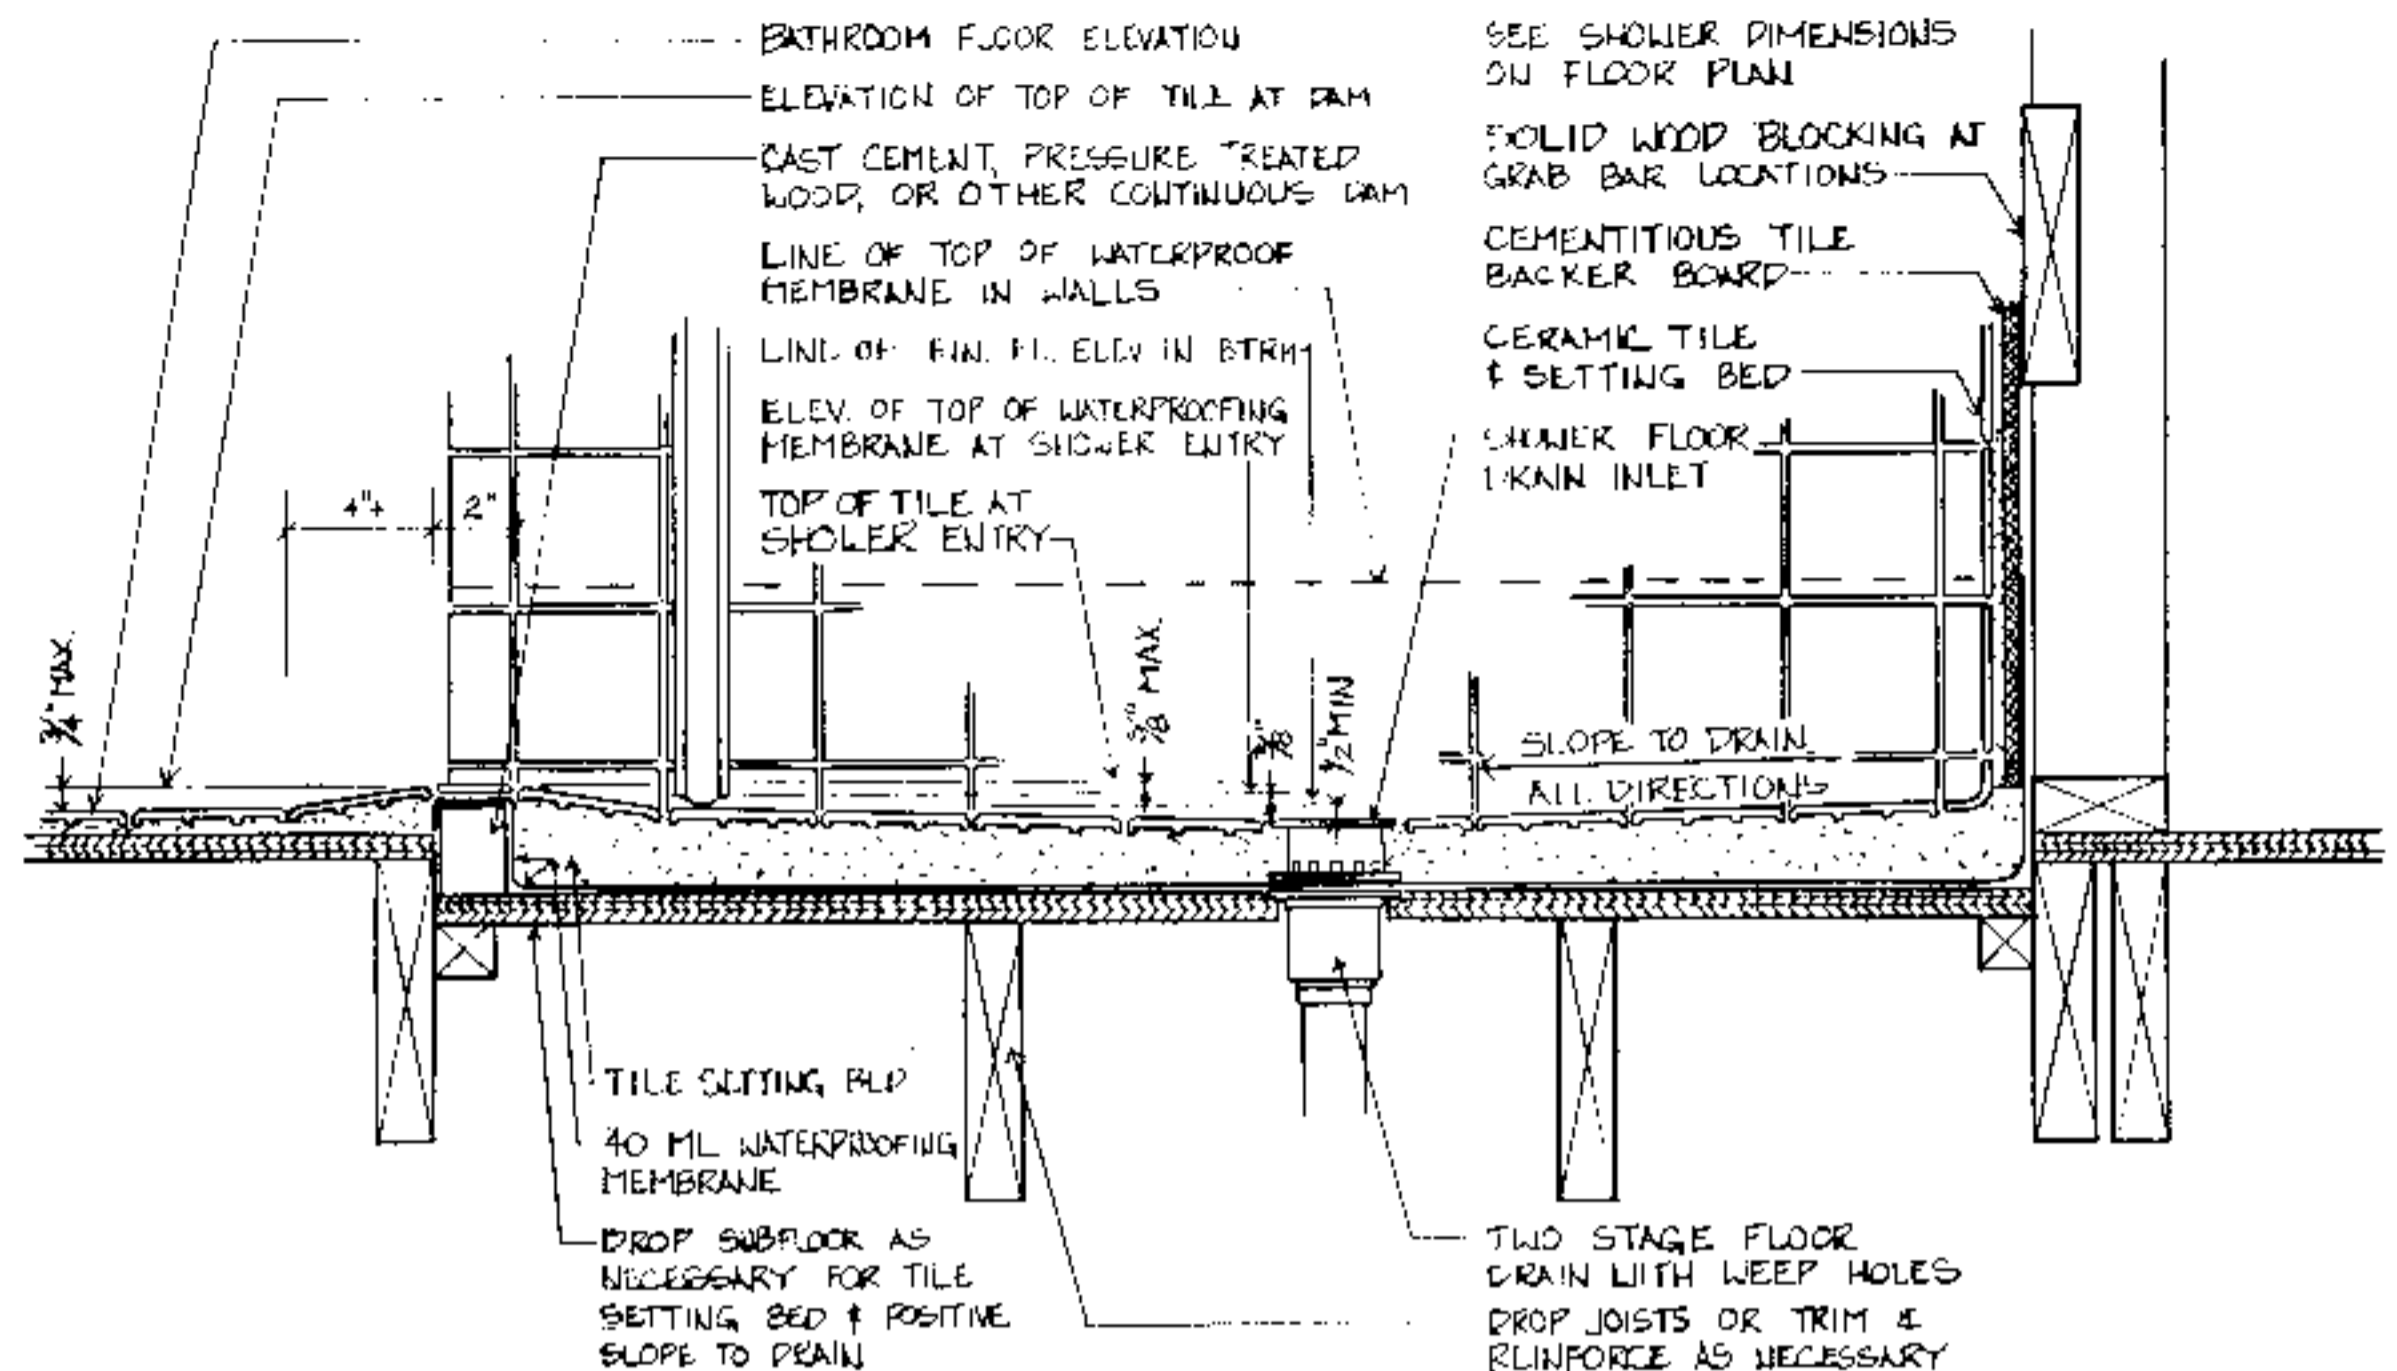 BATHROOM FLOOR ELEVATION
ELEVATION OF TOP OF TILE AT DAM
CAST CEMENT, PRESSURE TREATED
WOOD, OR OTHER CONTINUOUS DAM
LINE OF TOP OF WATERPROOF
MEMBRANE IN WALLS
LINE OF FIN. FL. ELEV IN BTRM
ELEV. OF TOP OF WATERPROOFING
MEMBRANE AT SHOWER ENTRY
TOP OF TILE AT
SHOWER ENTRY
SEE SHOWER DIMENSIONS
ON FLOOR PLAN
SOLID WOOD BLOCKING AT
GRAB BAR LOCATIONS
CEMENTITIOUS TILE
BACKER BOARD
CERAMIC TILE
& SETTING BED
SHOWER FLOOR
DRAIN INLET
4"+
2"
3/4" MAX.
5/8" MAX.
1/2" MIN
SLOPE TO DRAIN
ALL DIRECTIONS
TILE SETTING BED
40 ML WATERPROOFING
MEMBRANE
DROP SUBFLOOR AS
NECESSARY FOR TILE
SETTING BED & POSITIVE
SLOPE TO DRAIN
TWO STAGE FLOOR
DRAIN WITH WEEP HOLES
DROP JOISTS OR TRIM &
REINFORCE AS NECESSARY